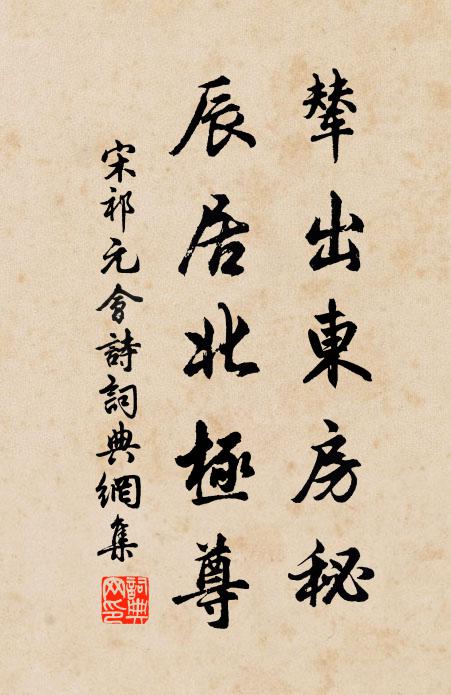 輦出東房秘
辰居北極尊
宋祁元會詩詞典網集